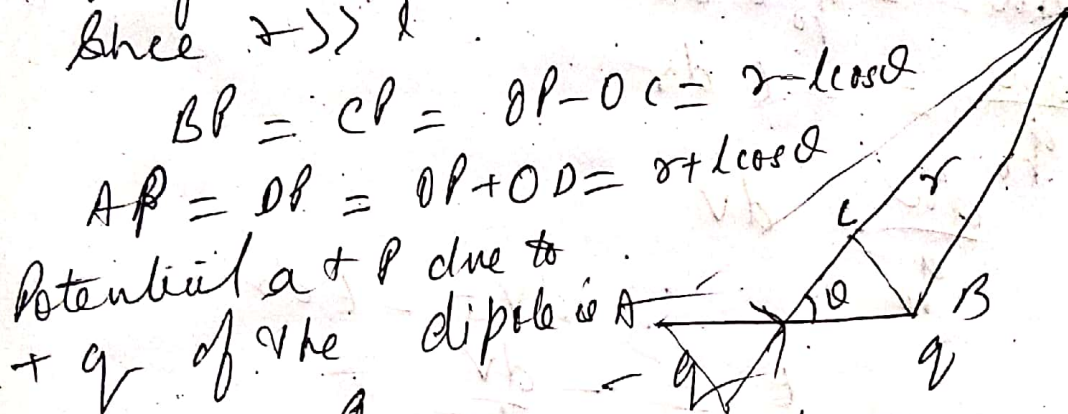 Since r >> l
BP = CP = OP - OC = r - lcosθ
AP = DP = OP + OD = r + lcosθ
Potential at P due to
+ q of the dipole is
r
C
A
θ
B
- q
q